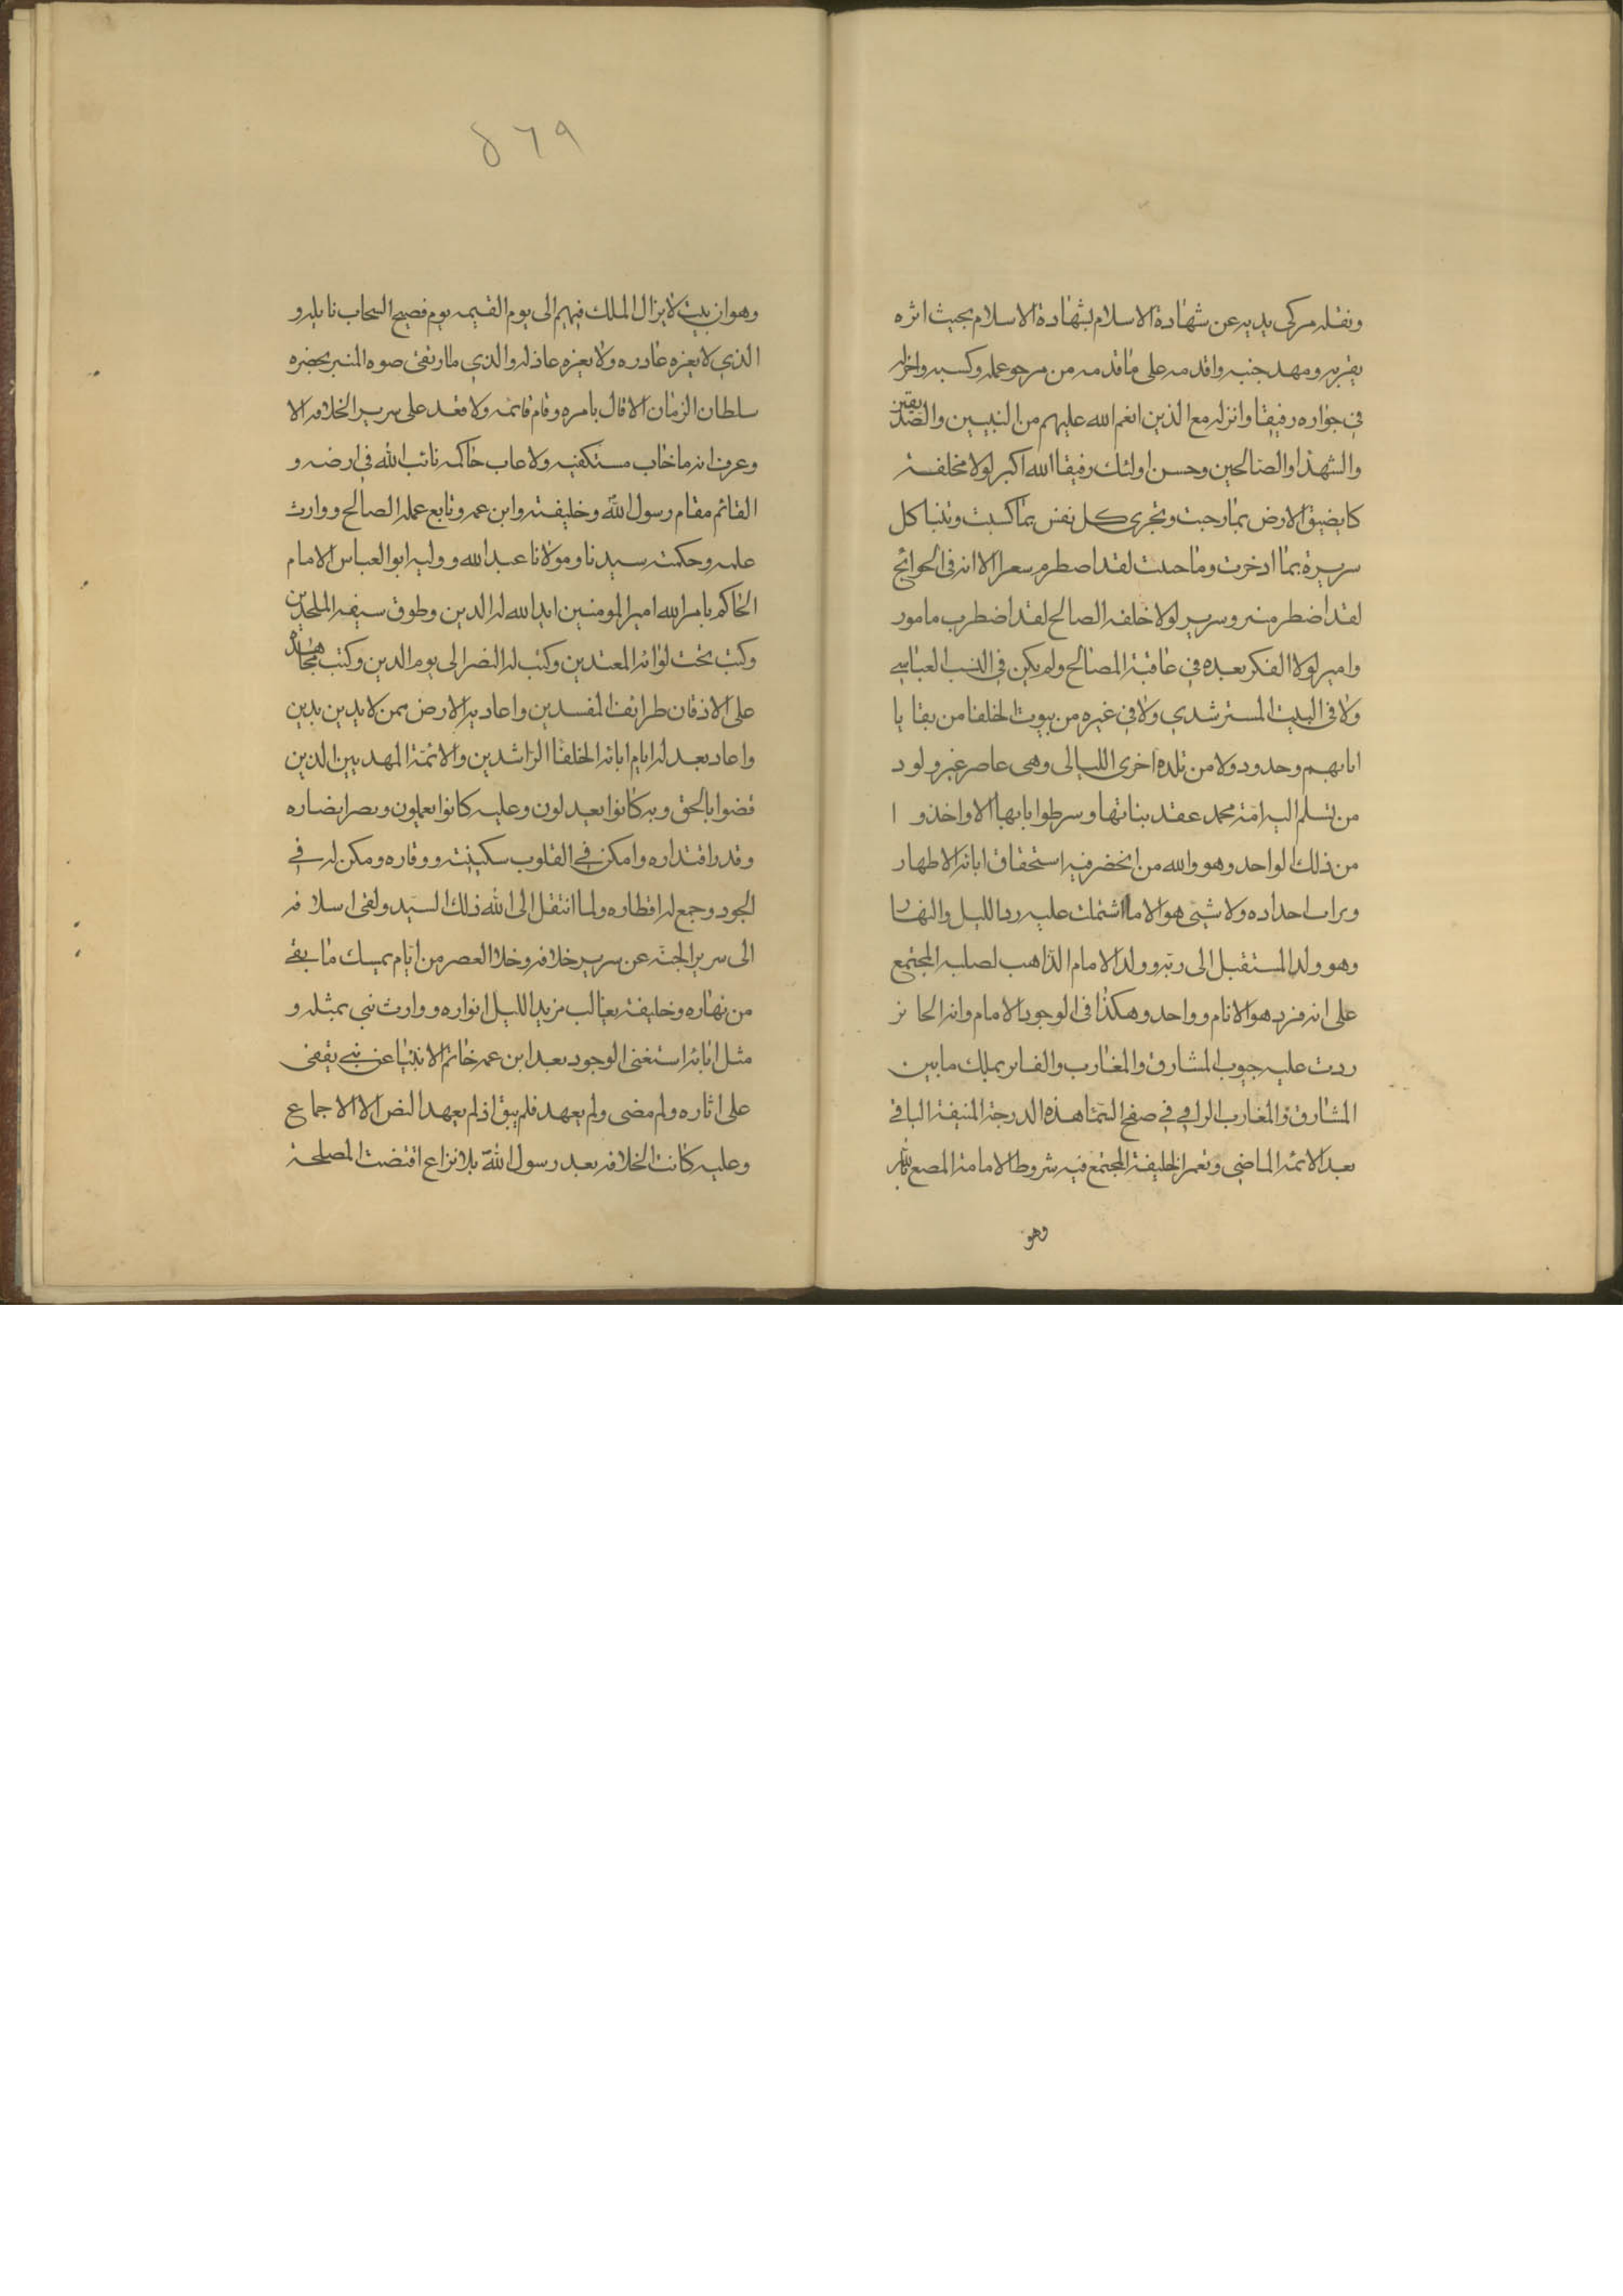 ونقله مركى يديه عن شهادة الاسلام بشهادة الاسلام بحيث اثره
بقربه ومهد جنبه واقدمه على ما قدمه من مرجو عمله وكسبه واخار له
في جواره رفيقا وانزله مع الذين انعم الله عليهم من النبيين والصديقين
والشهدا والصالحين وحسن اولئك رفيقا الله اكبر لولا مخلفه
كا يضيق الارض بما رحبت وتجرى كل نفس بما كسبت وتنبا كل
سريرة بما ادخرت وما حبت لقد اضطرم سعر الا انه فى الجوانح
لقد اضطر منبر وسرير لولا خلفه الصالح لقد اضطرب مامور
وامير لولا الفكر بعده في عاقبة المصالح ولم يكن في النسب العباسي
ولا في البيت المسترشدي ولا في غيره من بيوت الخلفا من بقايا
اباىهم وحدود ولا من تلده اخرى الليالى وهى عاصر غير ولود
من تسلم اليه امة محمد عقد بناتها وسرطوا باىها الا واخذوا
من ذلك الواحد وهو والله من انحضر فيه استحقاق ابائه الاطهار
وىراب احداده ولا شيى هو الا ما اشتملت عليه ردا الليل والنهار
وهو ولد المستقبل الى ربه وولد الامام الذاهب لصلبه المجتمع
على انه فرد هو الانام وواحد وهكذا فى الوجود الامام وانه الحائز
ردت عليه جيوب المشارق والمغارب والفائز بملك ما بين
المشارق والمغارب الراقي في صفح السما هذه الدرجة المنيفة الباقي
بعد الائمه الماضي ونعم الخليفة المجتمع فيه شروط الامامة المصع لله
وهو
٥٦٩
وهو ابن بيت لا يزال الملك فيهم الى يوم القيمه يوم فصيح السحاب نايله و
الذي لا يعزه عادره ولا يعزه عاذله والذي ما ارتفى صوه المنبر بحضره
سلطان الزمان الا قال بامره وقام قائمه ولا قعد على سرير الخلافه الا
وعرف انه ما خاب مستكفيه ولا عاب حاكمه نائب الله في ارضه و
القائم مقام رسول الله وخليفته وابن عمه وتابع عمله الصالح ووارث
علمه وحكمته سيدنا ومولانا عبد الله ووليه ابو العباس الامام
الحاكم بامر الله امير المومنين ايد الله له الدين وطوق سيفه الملحدين
وكبت تحت لوائه المعتدين وكتب له النصر الى يوم الدين وكتب بجهاده
على الاذقان طرايف المفسدين واعاد به الارض ممن لا يدين بدين
واعاد بعدله ايام ابائه الخلفا الراشدين والائمة المهديين الذين
قضوا بالحق وبه كانوا يعدلون وعليه كانوا يعملون ونصر انصاره
وقدر اقتداره وامكن في القلوب سكينته ووقاره ومكن له في
الجود وجمع له اقطاره ولما انتقل الى الله ذلك السيد ولقى اسلافه
الى سرير الجنة عن سرير خلافه وخلا العصر من ايام يمسك ما بقي
من نهاره وخليفة يغالب مزيد الليل انواره ووارث نبي بمثله و
مثل ابائه استغنى الوجود بعد ابن عمه خاتم الانبيا عن نبي يقفى
على اثاره ولم مضى ولم يعهد فلم يبق اذ لم يعهد النص الا الاجماع
وعليه كانت الخلافه بعد رسول الله بلا نزاع اقتضت المصلحة